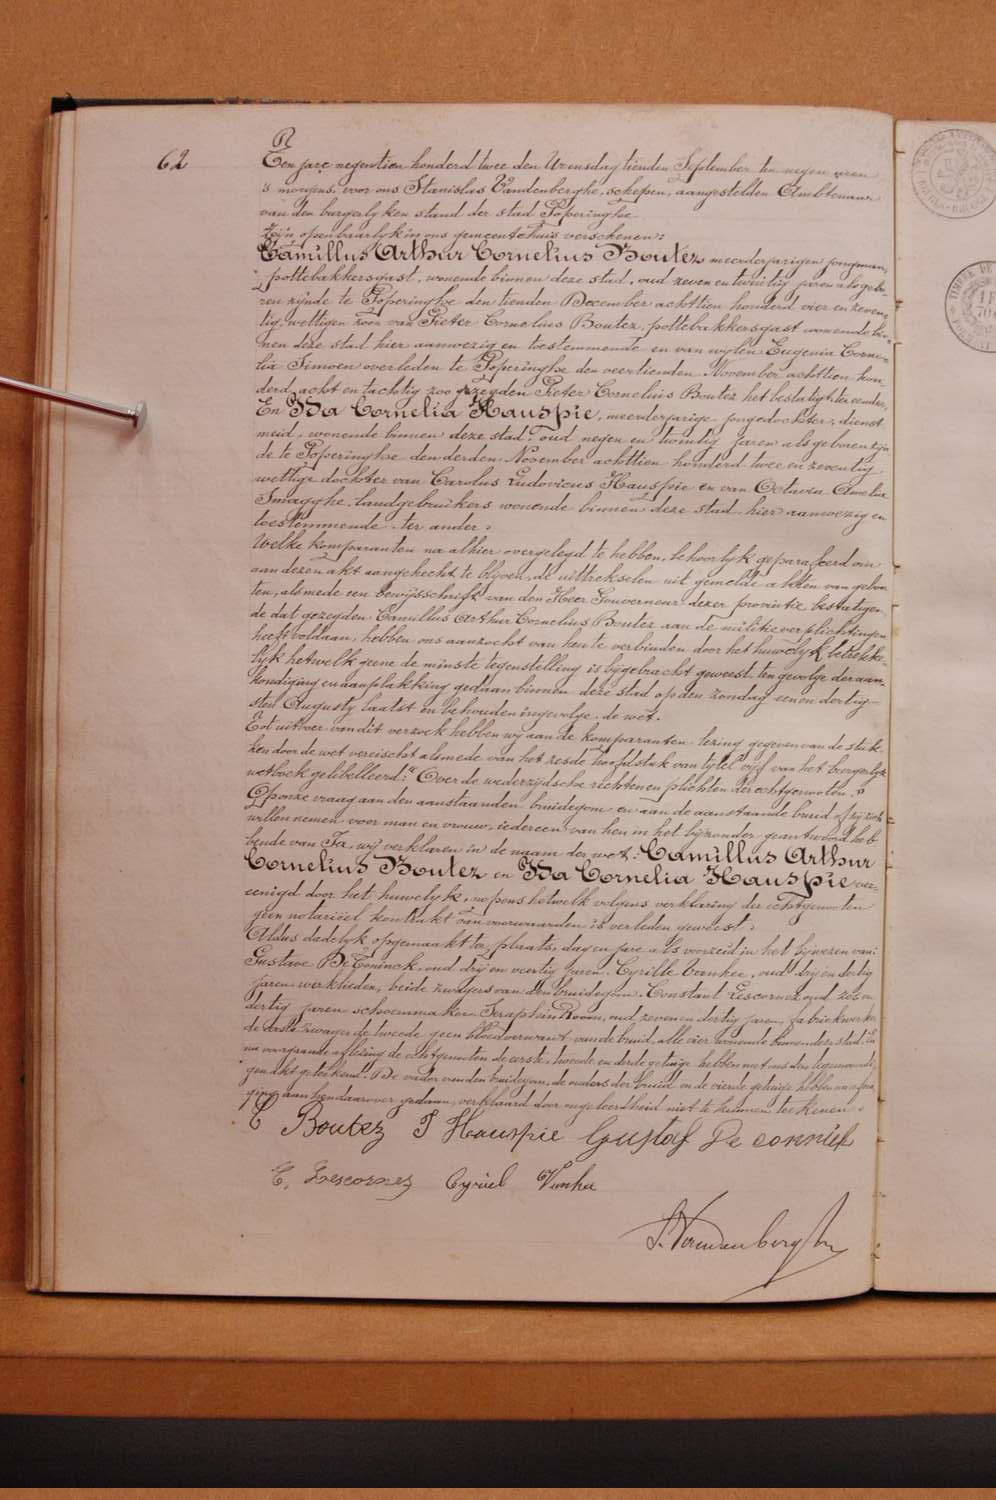 62
Ten jare negentien honderd twee den Woensdag tienden September ten negen uren
's morgens, voor ons Stanislas Vandenberghe, schepen, aangestelden Ambtenaar
van den burgerlyken stand der stad Poperinghe
Zyn openbaarlyk in ons gemeentehuis verschenen:
Camillus Arthur Cornelius Boutez meerderjarigen jongman,
pottebakkersgast, wonende binnen deze stad, oud zeven en twintig jaren als gebo-
ren zynde te Poperinghe den tienden December achttien honderd vier en zeven-
tig, wettigen zoon van Pieter Cornelius Boutez, pottebakkersgast wonende bin-
nen deze stad hier aanwezig en toestemmende en van wylen Eugenia Corne-
lia Simoen overleden te Poperinghe den veertienden November achttien hon-
derd acht en tachtig zoo gezegden Pieter Cornelius Boutez het bestatigt, ter eender,
En Ida Cornelia Hauspie, meerderjarige jongedochter, dienst
meid, wonende binnen deze stad, oud negen en twintig jaren als geboren zyn
de te Poperinghe den derden November achttien honderd twee en zeventig
wettige dochter van Carolus Ludovicus Hauspie en van Octavia Amelia
Smagghe, landgebruikers wonende binnen deze stad hier aanwezig en
toestemmende, ter ander.
Welke komparanten na alhier overgelegd te hebben, behoorlyk geparafeerd om
aan dezen akt aangehecht te blyven, de uittrekselen uit gemelde akten van geboor
ten, alsmede een bewysschrift van den Heer Gouverneur dezer provintie bestatigen
de dat gezegden Camillus Arthur Cornelius Boutez aan de militieverplichtingen
heeft voldaan, hebben ons aanzocht van hen te verbinden door het huwelyk betrekke-
lyk hetwelk geene de minste tegenstelling is bygebracht geweest, ten gevolge der aan-
kondiging en aanplakking gedaan binnen deze stad op den zondag een en dertig-
sten Augusty laatst en behouden ingevolge de wet.
Tot uitvoer van dit verzoek hebben wy aan de komparanten lezing gegeven van de stuk-
ken door de wet vereischt alsmede van het zesde hoofdstuk van tytel vyf van het burgerlyk
wetboek gelibelleerd: "Over de wederzydsche rechten en plichten der echtgenooten."
Op onze vraag aan den aanstaanden bruidegom en aan de aanstaande bruid of zy zich
willen nemen voor man en vrouw, iedereen van hen in het byzonder geantwoord heb-
bende van Ja, wy verklaren in de naam der wet: Camillus Arthur
Cornelius Boutez en Ida Cornelia Hauspie ver-
eenigd door het huwelyk, nopens hetwelk volgens verklaring der echtgenooten
geen notariëel kontrakt van voorwaarden is verleden geweest.
Aldus dadelyk opgemaakt ter plaats, dag en jare als voorzeid in het bywezen van:
Gustave De Coninck, oud dry en veertig jaren, Cyrille Vanhee, oud dry en dertig
jaren werklieden, beide zwagers van den bruidegom, Constant Lescornez oud zes en
dertig jaren schoenmaker Seraphin Room, oud zeven en dertig jaren, fabriekwerker
de derde zwager de tweede geen bloedverwant van de bruid, alle vier wonende binnen deze stad. En
na voorgaande aflezing de echtgenooten de eerste, tweede en derde getuige hebben met ons den tegenwoordi
gen akt geteekend. De vader van den bruidegom, de ouders der bruid en de vierde getuige hebben na afvra
ging aan hen daarover gedaan, verklaard door ongeleerdheid niet te kunnen teekenen.
C Boutez I Hauspie Gustaf De connick
C. Lescornez Cyriel Vanhee
S. Vandenberghe